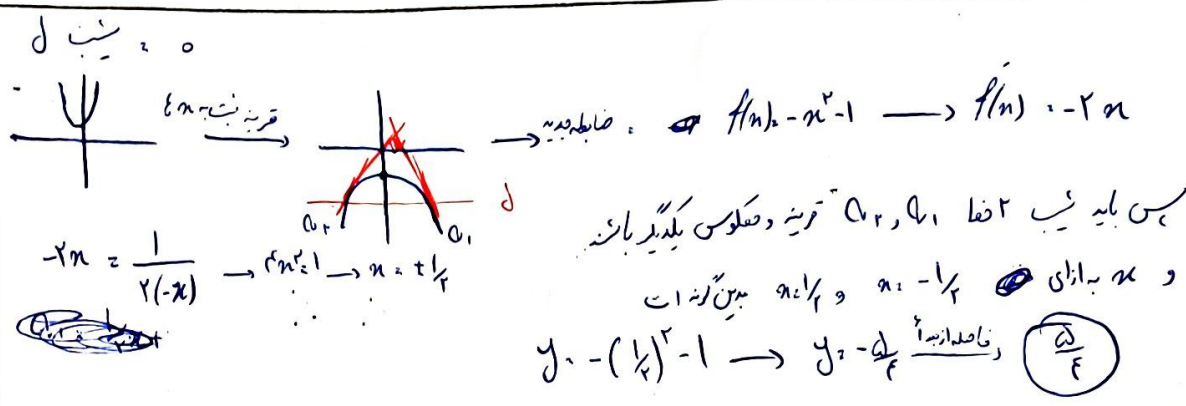 شیب d = ۰
قرینه نسبت به xها → ضابطه جدید: f(x) = -x² - 1 → f'(x) = -۲x
d
a₂ a₁
پس باید شیب ۲ خط a₁ و a₂ قرینه و معکوس یکدیگر باشند
-۲x = 1/۲(-x) → ۴x² = 1 → x = ±1/۲
و x به ازای x = -1/۲ و x = 1/۲ بدین گونه است
y = -(1/۲)² - 1 → y = -۵/۴ فاصله از مبدأ → ۵/۴